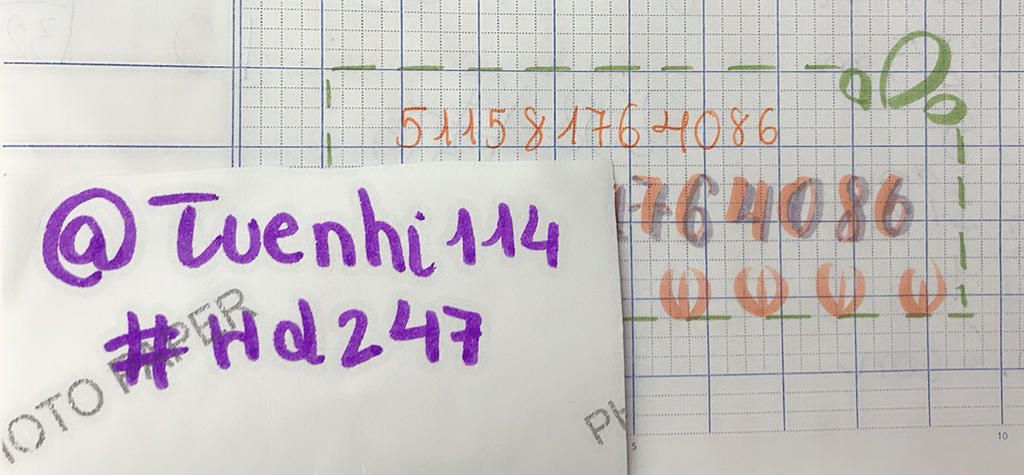 511581764086
1764086
@Tuenhi114
#Hd247
PHOTO PAPER
5
10